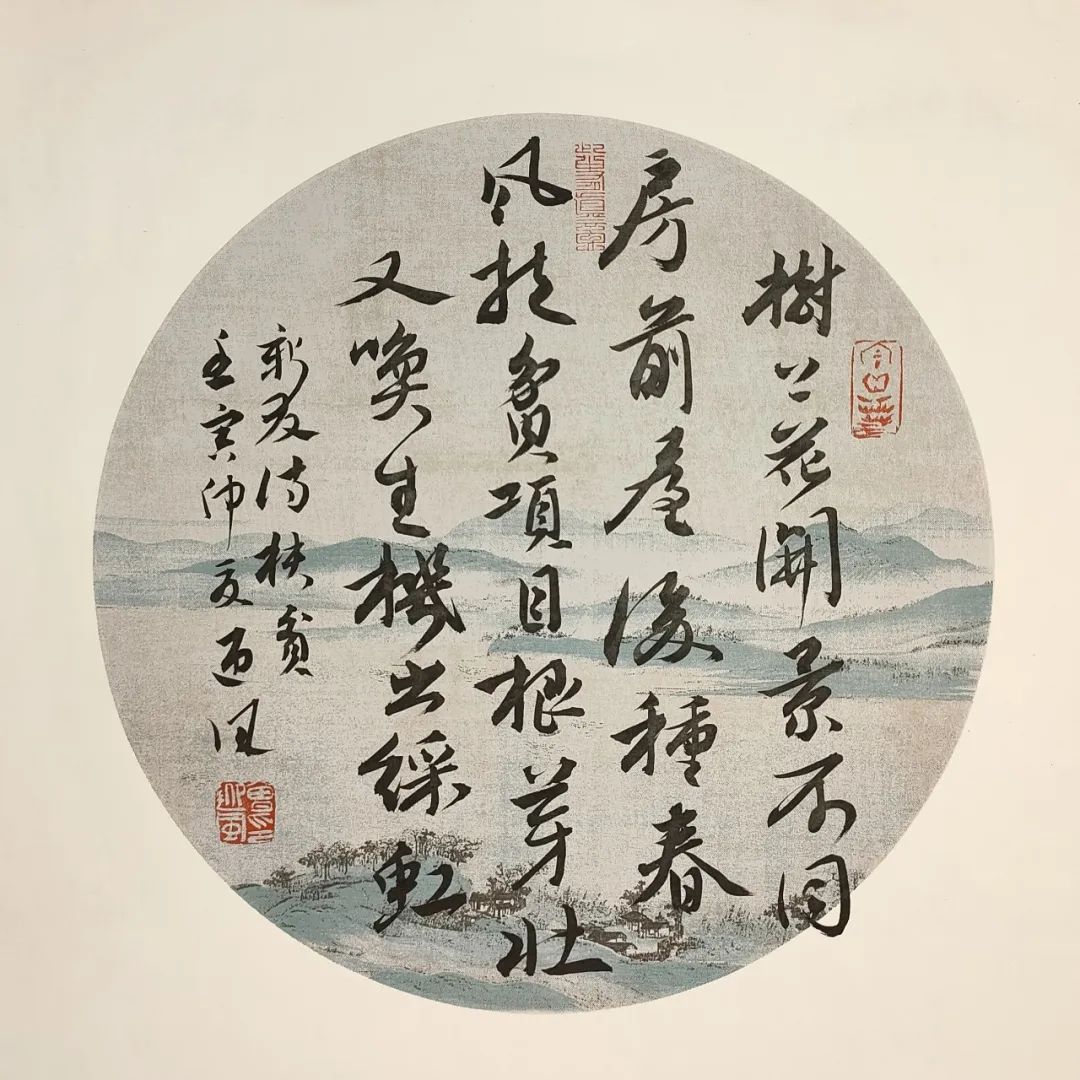 樹〻花開景不同
房前屋後種春
風扶貧項目根芽壯
又喚生機出綵虹
友詩扶貧
壬寅仲夏迎